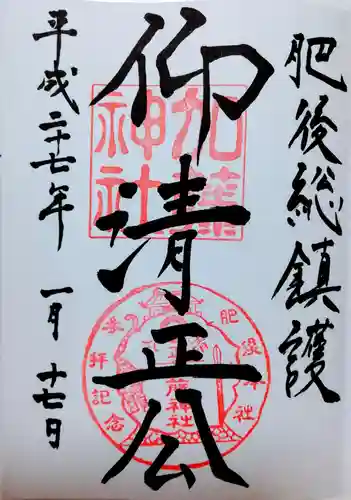 肥後総鎮護
仰清正公
平成二十七年 一月 十七日
加藤神社
加藤神社
参拝記念